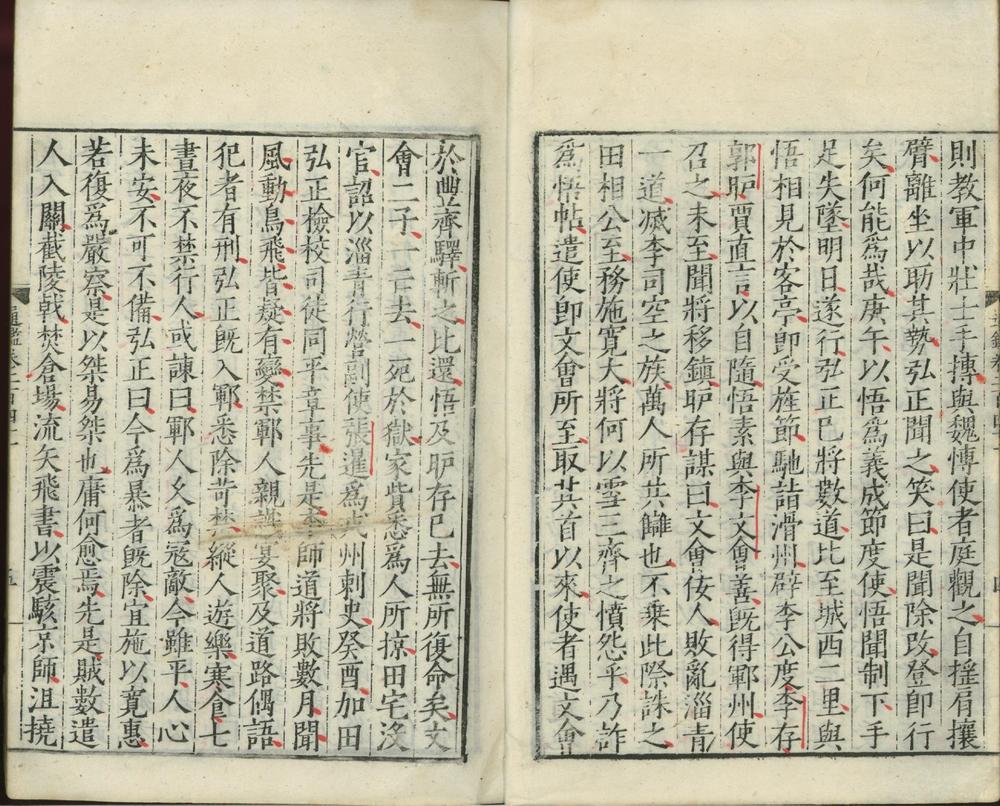 則教軍中壯士手搏與魏博使者庭觀之自搖肩攘
臂離坐以助其勢弘正聞之笑曰是聞除改登卽行
矣何能爲哉庚午以悟爲義成節度使悟聞制下手
足失墜明日遂行弘正已將數道比至城西二里與
悟相見於客亭卽受旌節馳詣滑州辟李公度李存
郭昈賈直言以自隨悟素與李文會善旣得鄆州使
召之未至聞將移鎮昈存謀曰文會佞人敗亂淄青
一道滅李司空之族萬人所共讎也不乗此際誅之
田相公至務施寛大將何以雪三齊之憤怨乎乃詐
爲悟帖遣使卽文會所至取其首以來使者遇文會
於豊齊驛斬之比還悟及昈存已去無所復命矣文
會二子一亡去一死於獄家貲悉爲人所掠田宅沒
官詔以淄青行營副使張暹爲戎州刺史癸酉加田
弘正檢校司徒同平章事先是李師道將敗數月聞
風動鳥飛皆疑有變禁鄆人親識宴聚及道路偶語
犯者有刑弘正旣入鄆悉除苛禁縱人遊樂寒食七
晝夜不禁行人或諫曰鄆人乆爲宼敵今雖平人心
未安不可不備弘正曰今爲暴者旣除宜施以寛惠
若復爲嚴察是以桀易桀也庸何愈焉先是賊數遣
人入關截陵戟焚倉場流矢飛書以震駭京師沮撓
通鑑卷二百四十一
五